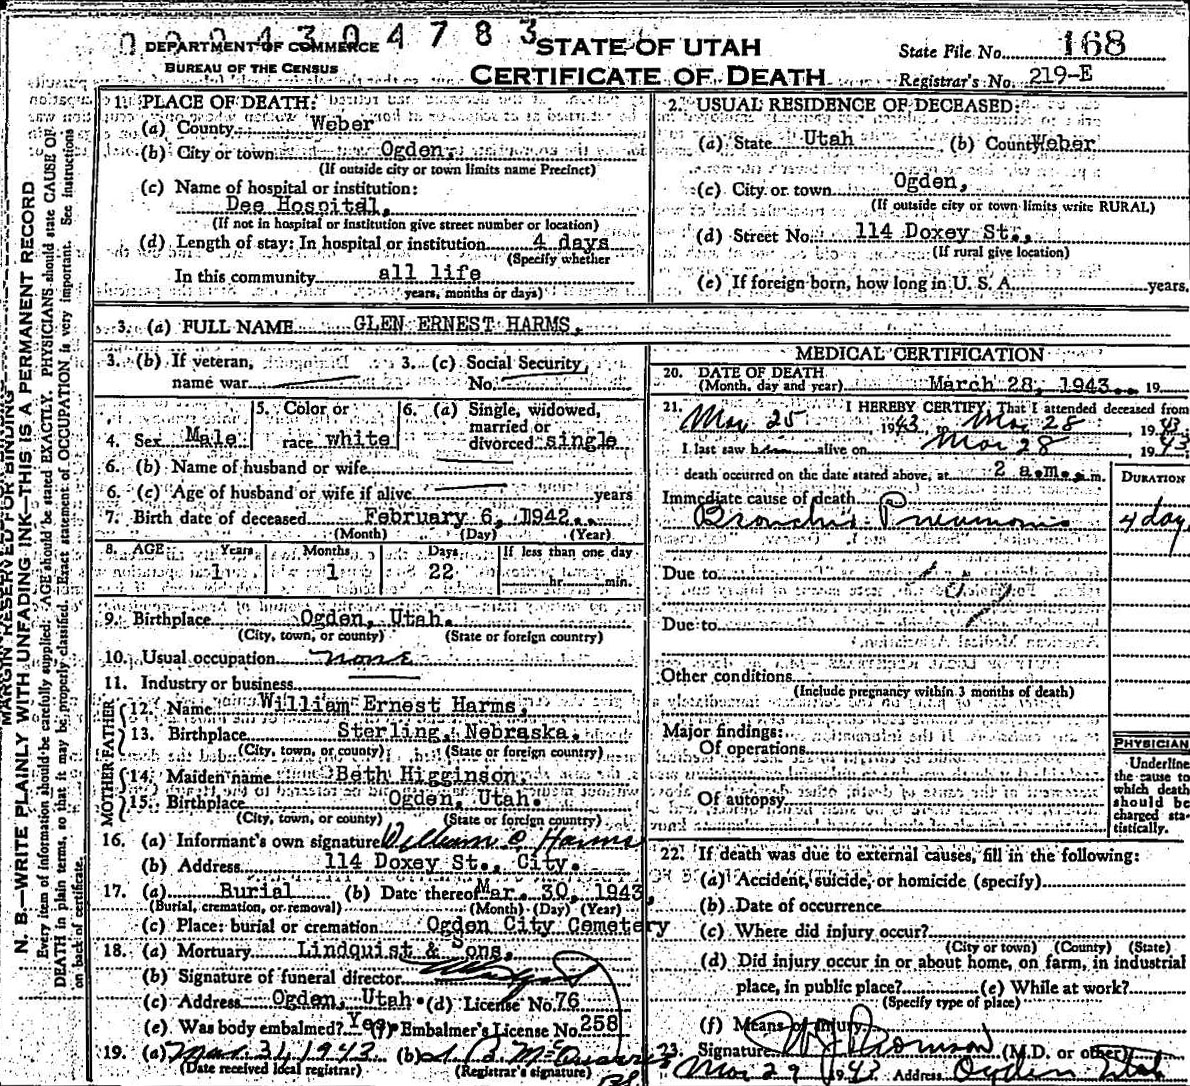 0004304783
DEPARTMENT OF COMMERCE
BUREAU OF THE CENSUS
STATE OF UTAH
CERTIFICATE OF DEATH
State File No. 168
Registrar's No. 219-E
1. PLACE OF DEATH:
(a) County Weber
(b) City or town Ogden,
(If outside city or town limits name Precinct)
(c) Name of hospital or institution:
Dee Hospital,
(If not in hospital or institution give street number or location)
(d) Length of stay: In hospital or institution 4 days
(Specify whether
In this community all life
years, months or days)
2. USUAL RESIDENCE OF DECEASED:
(a) State Utah (b) County Weber
(c) City or town Ogden,
(If outside city or town limits write RURAL)
(d) Street No. 114 Doxey St.,
(If rural give location)
(e) If foreign born, how long in U. S. A. years.
3. (a) FULL NAME GLEN ERNEST HARMS,
3. (b) If veteran, name war
3. (c) Social Security No.
4. Sex Male
5. Color or race white
6. (a) Single, widowed, married or divorced single
6. (b) Name of husband or wife
6. (c) Age of husband or wife if alive years
7. Birth date of deceased February 6, 1942
(Month) (Day) (Year)
8. AGE Years Months Days If less than one day
1 1 22 hr. min.
9. Birthplace Ogden, Utah.
(City, town, or county) (State or foreign country)
10. Usual occupation none
11. Industry or business
FATHER
12. Name William Ernest Harms,
13. Birthplace Sterling, Nebraska.
(City, town, or county) (State or foreign country)
MOTHER
14. Maiden name Beth Higginson,
15. Birthplace Ogden, Utah.
(City, town, or county) (State or foreign country)
16. (a) Informant's own signature William E Harms
(b) Address 114 Doxey St., City.
17. (a) Burial (b) Date thereof Mar. 30, 1943,
(Burial, cremation, or removal) (Month) (Day) (Year)
(c) Place: burial or cremation Ogden City Cemetery
18. (a) Mortuary Lindquist & Sons,
(b) Signature of funeral director
(c) Address Ogden, Utah. (d) License No. 76
(e) Was body embalmed? Yes. (f) Embalmer's License No. 258
19. (a) Mar. 31, 1943 (b)
(Date received local registrar) (Registrar's signature)
MEDICAL CERTIFICATION
20. DATE OF DEATH
(Month, day and year) March 28, 1943. 19
21. I HEREBY CERTIFY, That I attended deceased from
Mar 25, 1943, to Mar 28, 1943
I last saw him alive on Mar 28, 1943
death occurred on the date stated above, at 2 a.m. m.
DURATION
Immediate cause of death
Bronchial Pneumonia 4 day
Due to
Due to
Other conditions
(Include pregnancy within 3 months of death)
Major findings:
Of operations
Of autopsy
PHYSICIAN
Underline
the cause to
which death
should be
charged sta-
tistically.
22. If death was due to external causes, fill in the following:
(a) Accident, suicide, or homicide (specify)
(b) Date of occurrence
(c) Where did injury occur?
(City or town) (County) (State)
(d) Did injury occur in or about home, on farm, in industrial
place, in public place? (e) While at work?
(Specify type of place)
(f) Means of injury
23. Signature (M.D. or other)
Mar 29 1943 Address Ogden Utah
MARGIN RESERVED FOR BINDING
N. B.—WRITE PLAINLY WITH UNFADING INK—THIS IS A PERMANENT RECORD
Every item of information should be carefully supplied. AGE should be stated EXACTLY. PHYSICIANS should state CAUSE OF
DEATH in plain terms, so that it may be properly classified. Exact statement of OCCUPATION is very important. See instructions
on back of certificate.